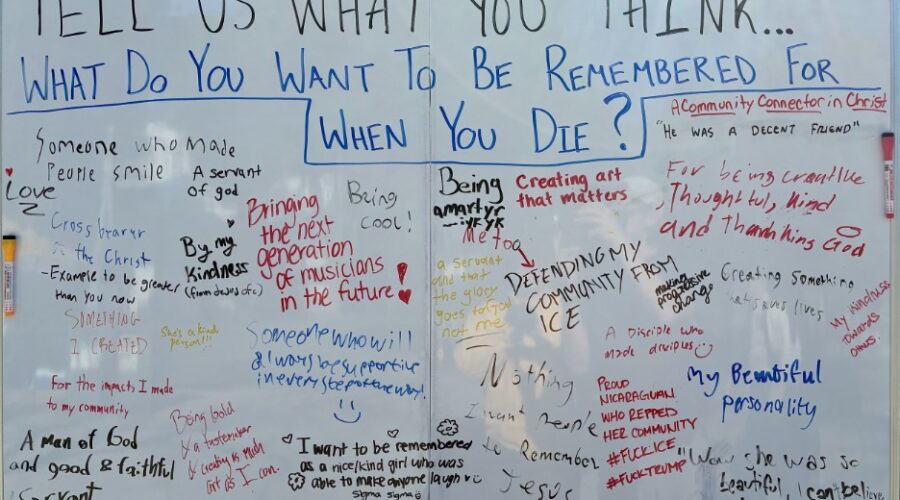 TELL US WHAT YOU THINK...
WHAT DO YOU WANT TO BE REMEMBERED FOR
WHEN YOU DIE?
A Community Connector in Christ
"HE WAS A DECENT FRIEND"
Someone who made
People smile
A servant
of god
Love
Crossbearer
the Christ
- Example to be greater
than you now
By my
kindness
Bringing
the next
generation
of musicians
in the future!
Being
cool!
Being
a martyr
- iykyk
Me too
Creating art
that matters
For being creative
, Thoughtful, kind
and Thanking God
a servant
and that
the glory
goes to God
not me
DEFENDING MY
COMMUNITY FROM
ICE
making
progressive
change
Creating something
that saves lives
My kindness
towards
others.
SOMETHING
I CREATED
She's a kind
person!!!
Someone who will
always be supportive
in every step of the way!
A Disciple who
made
For the impacts I made
to my community
Being bold
& a tastemaker
& creating as much
art as I can.
Nothing
I want People
to Remember
Jesus
PROUD
NICARAGUAN
WHO REPPED
HER COMMUNITY
#FUCKICE
#FUCKTRUMP
My Beautiful
personality
A man of God
and good & faithful
servant
I want to be remembered
as a nice/kind girl who was
able to make anyone laugh
sigma sigma
"Wow she was so
beautiful I can't believe